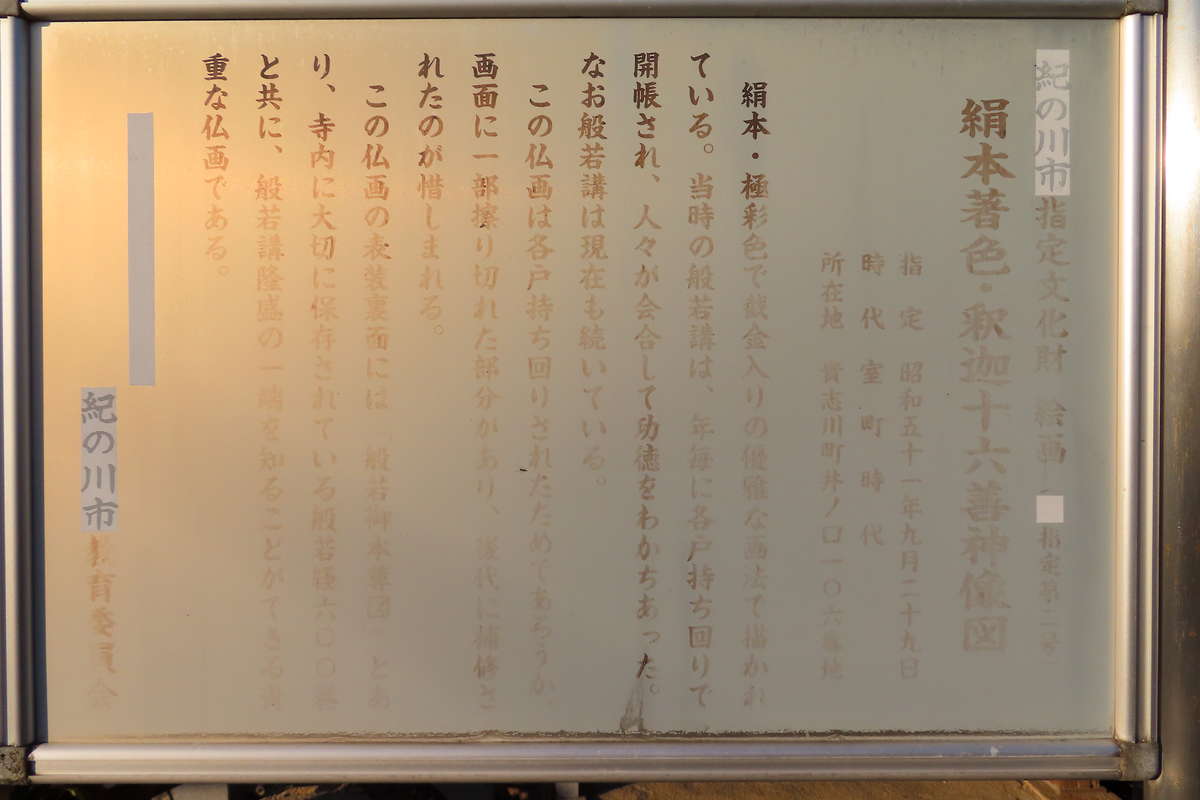 紀の川市指定文化財 絵画（ 指定第二号）
絹本著色・釈迦十六善神像図
指定 昭和五十一年九月二十九日
時代 室町時代
所在地 貴志川町井ノ口一〇六番地
絹本・極彩色で截金入りの優雅な画法で描かれ
ている。当時の般若講は、年毎に各戸持ち回りで
開帳され、人々が会合して功徳をわかちあった。
なお般若講は現在も続いている。
この仏画は各戸持ち回りされたためであろうか、
画面に一部擦り切れた部分があり、後代に補修さ
れたのが惜しまれる。
この仏画の表装裏面には「般若御本尊図」とあ
り、寺内に大切に保存されている般若経六〇〇巻
と共に、般若講隆盛の一端を知ることができる貴
重な仏画である。
紀の川市教育委員会